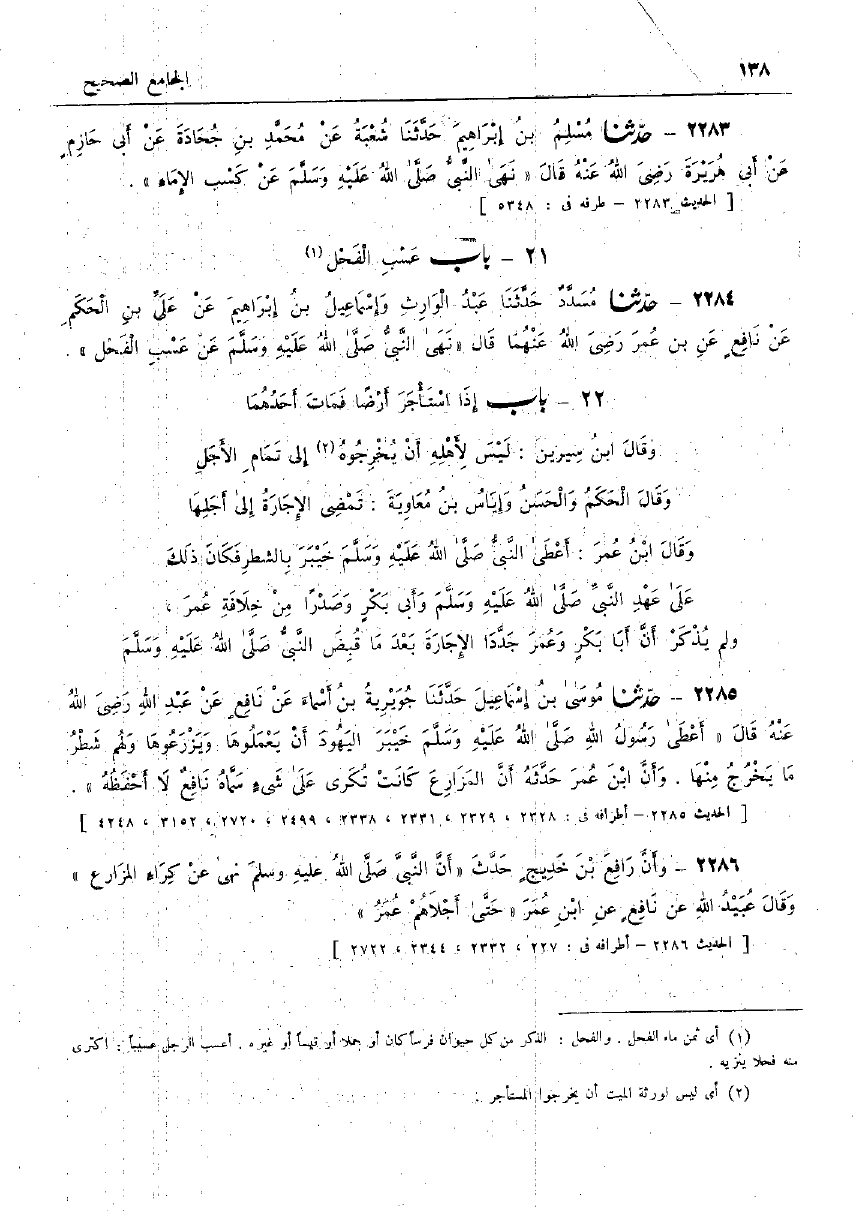 ١٣٨ الجامع الصحيح
٢٢٨٣ – حدّثنا مُسْلِمُ بنُ إِبْرَاهِيمَ حَدَّثَنَا شُعْبَةُ عَنْ مُحَمَّدِ بنِ جُحَادَةَ عَنْ أَبى حَازِمٍ
عَنْ أَبى هُرَيْرَةَ رَضِىَ اللهُ عَنْهُ قَالَ « نَهَى النَّبِىُّ صَلَّى اللهُ عَلَيْهِ وَسَلَّمَ عَنْ كَسْبِ الإِمَاءِ » .
[ الحديث ٢٢٨٣ – طرفه فى : ٥٣٤٨ ]
٢١ – باب عَسْبِ الْفَحْلِ (١)
٢٢٨٤ – حدّثنا مُسَدَّدٌ حَدَّثَنَا عَبْدُ الْوَارِثِ وَإِسْمَاعِيلُ بنُ إِبْرَاهِيمَ عَنْ عَلَىِّ بنِ الْحَكَمِ
عَنْ نَافِعٍ عَنِ بنِ عُمَرَ رَضِىَ اللهُ عَنْهُمَا قَالَ «نَهَى النَّبِىُّ صَلَّى اللهُ عَلَيْهِ وَسَلَّمَ عَنْ عَسْبِ الْفَحْلِ» .
٢٢ – باب إِذَا اسْتَأْجَرَ أَرْضًا فَمَاتَ أَحَدُهُمَا
وَقَالَ ابنُ سِيرِينَ : لَيْسَ لِأَهْلِهِ أَنْ يُخْرِجُوهُ (٢) إلى تَمَامِ الأَجَلِ
وَقَالَ الْحَكَمُ وَالْحَسَنُ وَإِيَاسُ بنُ مُعَاوِيَةَ : تَمْضِى الإِجَارَةُ إِلَى أَجَلِهَا
وَقَالَ ابْنُ عُمَرَ : أَعْطَى النَّبِىُّ صَلَّى اللهُ عَلَيْهِ وَسَلَّمَ خَيْبَرَ بِالشطرِ فَكَانَ ذَلِكَ
عَلَى عَهْدِ النَّبِىِّ صَلَّى اللهُ عَلَيْهِ وَسَلَّمَ وَأَبِى بَكْرٍ وَصَدْرًا مِنْ خِلَافَةِ عُمَرَ ،
ولم يُذْكَرْ أَنَّ أَبَا بَكْرٍ وَعُمَرَ جَدَّدَا الإِجَارَةَ بَعْدَ مَا قُبِضَ النَّبِىُّ صَلَّى اللهُ عَلَيْهِ وَسَلَّمَ
٢٢٨٥ – حدّثنا مُوسَى بنُ إِسْمَاعِيلَ حَدَّثَنَا جُوَيْرِيةُ بنُ أَسْمَاءَ عَنْ نَافِعٍ عَنْ عَبْدِ اللهِ رَضِىَ اللهُ
عَنْهُ قَالَ « أَعْطَى رَسُولُ اللهِ صَلَّى اللهُ عَلَيْهِ وَسَلَّمَ خَيْبَرَ اليَهُودَ أَنْ يَعْمَلُوهَا وَيَزْرَعُوهَا وَلَهُم شَطْرُ
مَا يَخْرُجُ مِنْهَا . وَأَنَّ ابْنَ عُمَرَ حَدَّثَهُ أَنَّ المَزَارِعَ كَانَتْ تُكَرى عَلَى شَىءٍ سَمَّاهُ نَافِعٌ لَا أَحْفَظُهُ » .
[ الحديث ٢٢٨٥ – أطرافه فى : ٢٣٢٨ ، ٢٣٢٩ ، ٢٣٣١ ، ٢٣٣٨ ، ٢٤٩٩ ، ٢٧٢٠ ، ٣١٥٢ ، ٤٢٤٨ ]
٢٢٨٦ – وأَنَّ رَافِعَ بْنَ خَدِيجٍ حَدَّثَ « أَنَّ النَّبِىَّ صَلَّى اللهُ عليهِ وسلمَ نهى عنْ كِرَاءِ المَزارعِ »
وَقَالَ عُبَيْدُ اللهِ عَن نَافِعٍ عنِ ابْنِ عُمَرَ « حَتَّى أَجْلَاهُمْ عُمَرُ »
[ الحديث ٢٢٨٦ – أطرافه فى : ٢٢٧ ، ٢٣٣٢ ، ٢٣٤٤ ، ٢٧٢٢ ]
(١) أى ثمن ماء الفحل . والفحل : الذكر من كل حيوان فرساً كان أو جملا أو تيساً أو غيره . أعسب الرجل عسيباً : اكترى
منه فحلا ينزيه .
(٢) أى ليس لورثة الميت أن يخرجوا المستأجر .